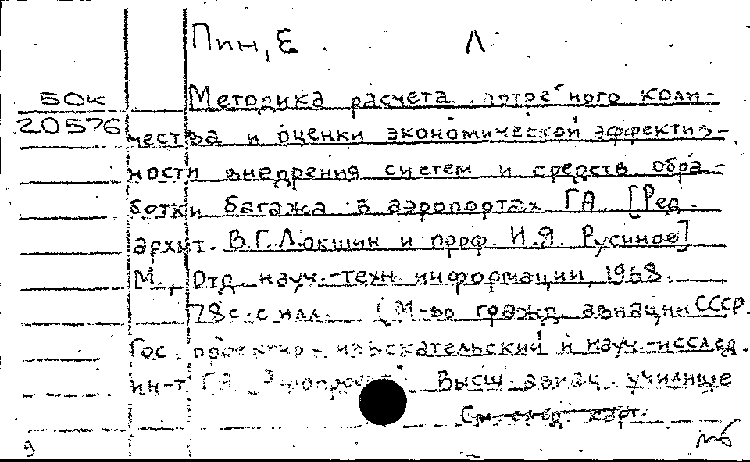 Пин, Е. Л
БОк Методика расчета потребного коли-
20576 чества и оценки экономической эффектив-
ности внедрения систем и средств обра-
ботки багажа в аэропортах ГА. [Ред.
архит. В.Г. Локшин и проф. И.Я. Русинов]
М., Отд. науч.-техн. информации, 1968.
78 с. с илл. (М-во гражд. авиации СССР.
Гос. проектно-изыскательский и науч.-исслед.
ин-т ГА "Аэропроект". Высш. авиац. училище
См. след. карт.
9 мб